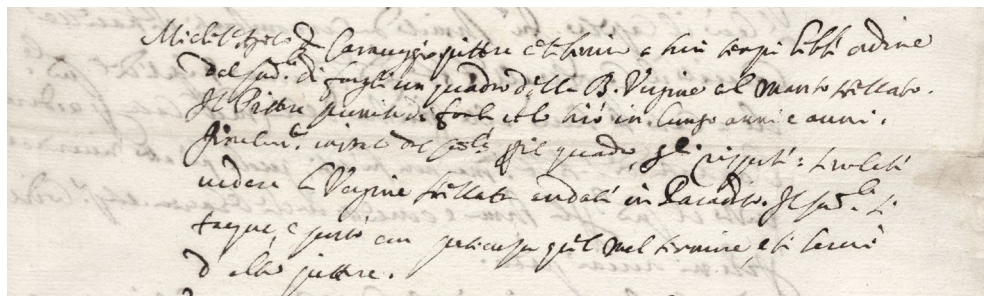 Michel Ang.lo da Caravaggio pittore celebre a suoi tempi hebbe ordine
dal sud.o di fargli un quadro della B. Vergine col manto stellato.
Il Pittore promise di farlo e lo tirò in lungo anni e anni.
Finalm.te del Card.le p il quadro, gli rispose: se volete
vedere la Vergine stellata andate in Paradiso. Il Card.le si
tacque, e portò con pazienza quel mal termine e si servì
d'altro pittore.